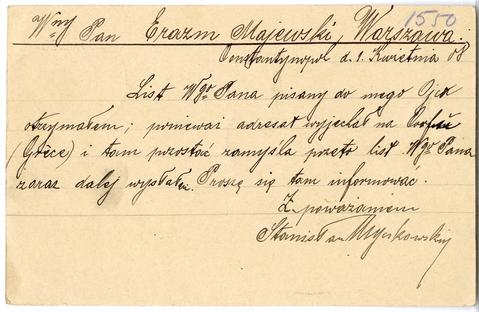 1550
Wny Pan Erazm Majewski, Warszawa.
Constantynopol d. 1. Kwietnia 08
List Wgo Pana pisany do mego Ojca
otrzymałem; ponieważ adresat wyjechał na
(Grèce) i tam pozostać zamyśla przeto list Wgo Pana
zaraz dalej wysłałem. Proszę się tam informować.
Z poważaniem
Stanisław